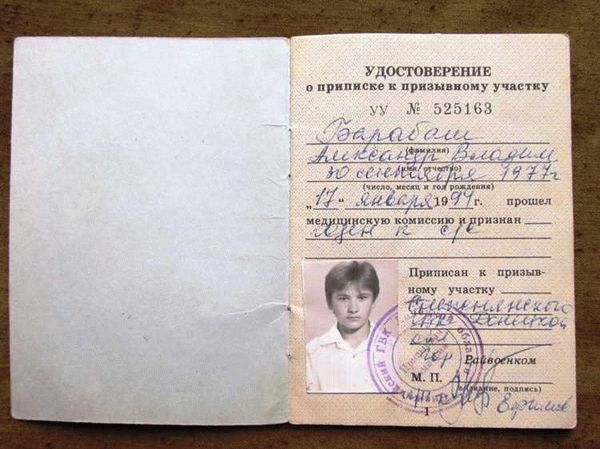 УДОСТОВЕРЕНИЕ
о приписке к призывному участку
УУ № 525163
Барабаш
(фамилия)
Александр Владим
(имя, отчество)
30 сентября 1977г
(число, месяц и год рождения)
„17“ января 1994г. прошел
медицинскую комиссию и признан
годен к с/с
Приписан к призыв-
ному участку
Снежнянского
ГВК Донецкой
обл
Райвоенком
М. П.
(звание, подпись)
Ефимов
1